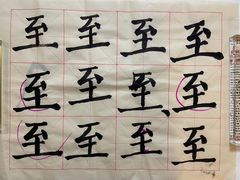 至 至 至 至
至 至 至 至
至 至 至 至